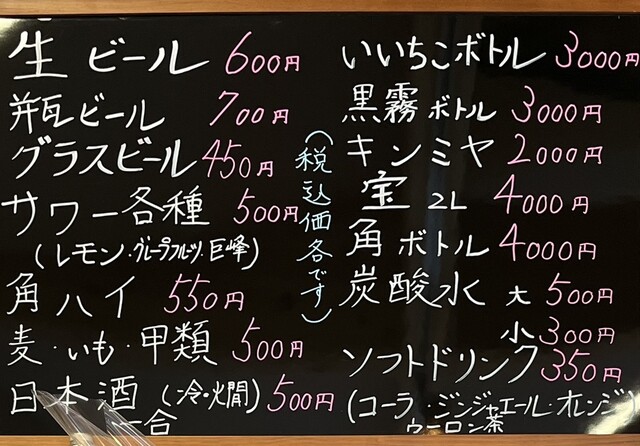 生ビール 600円
瓶ビール 700円
グラスビール 450円
サワー各種 500円
(レモン・グレープフルーツ・巨峰)
角ハイ 550円
麦・いも・甲類 500円
日本酒(冷・燗) 500円
一合
(税込価各です)
いいちこボトル 3000円
黒霧ボトル 3000円
キンミヤ 2000円
宝 2L 4000円
角ボトル 4000円
炭酸水 大 500円
小 300円
ソフトドリンク 350円
(コーラ・ジンジャエール・オレンジ)
ウーロン茶